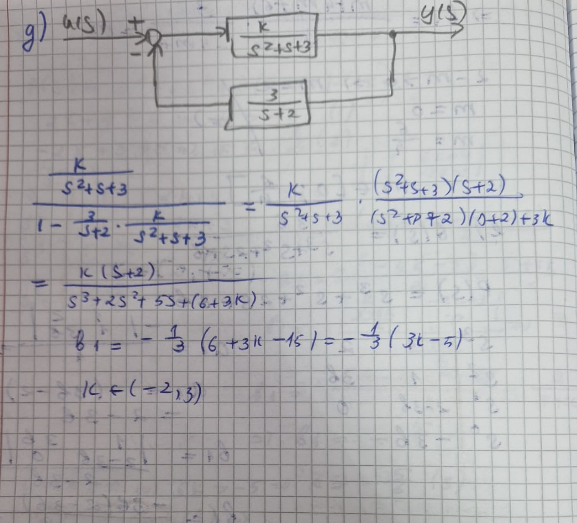 g) u(s) + - K/(s²+s+3) y(s)
3/(s+2)
(K/(s²+s+3))/(1 - 3/(s+2) · K/(s²+s+3)) = K/(s²+s+3) · (s²+s+3)(s+2)/((s²+s+2)(s+2)+3K)
= K(s+2)/(s³+2s²+5s+(6+3K))
b₁ = -1/3 (6+3K-15) = -1/3 (3K-5)
K ∈ (-2,3)